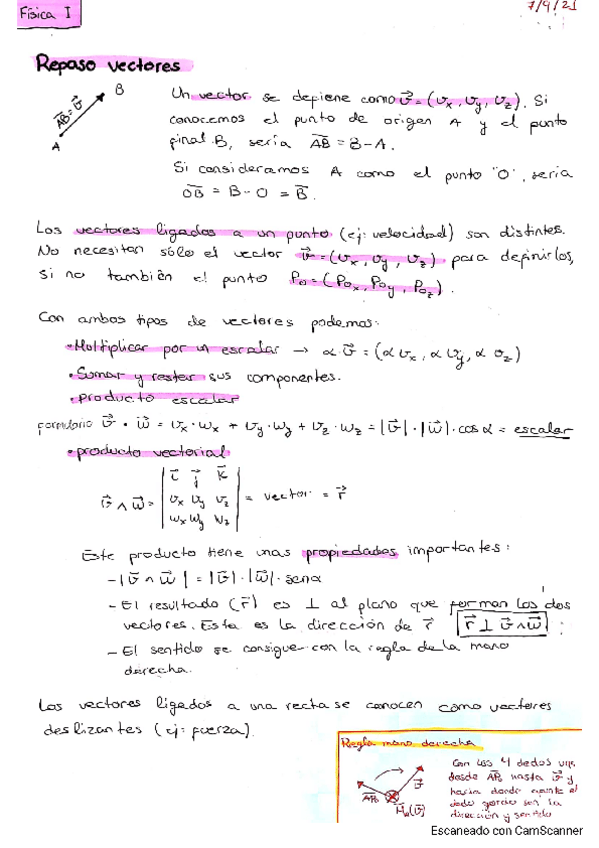 Física I
7/9/21
Repaso vectores
B
AB = v⃗
A
Un vector se define como v⃗ = (vx, vy, vz). Si
conocemos el punto de origen A y el punto
final B, sería AB = B - A.
Si consideramos A como el punto "O", sería
OB = B - O = B.
Los vectores ligados a un punto (ej: velocidad) son distintos.
No necesitan sólo el vector v⃗ = (vx, vy, vz) para definirlos,
si no también el punto P0 = (P0x, P0y, P0z).
Con ambos tipos de vectores podemos:
• Multiplicar por un escalar → α·v⃗ = (αvx, αvy, αvz)
• Sumar y restar sus componentes.
• producto escalar
formulario v⃗ • w⃗ = vx·wx + vy·wy + vz·wz = |v⃗|·|w⃗|·cosα = escalar
• producto vectorial
i⃗ j⃗ k⃗
v⃗ ∧ w⃗ = vx vy vz = vector = r⃗
wx wy wz
Este producto tiene unas propiedades importantes:
- |v⃗ ∧ w⃗| = |v⃗|·|w⃗|·senα
- El resultado (r⃗) es ⊥ al plano que forman los dos
vectores. Esta es la dirección de r⃗ r⃗ ⊥ v⃗∧w⃗
- El sentido se consigue con la regla de la mano
derecha.
Los vectores ligados a una recta se conocen como vectores
deslizantes (ej: fuerza).
Regla mano derecha
Con los 4 dedos
desde AP0 hasta v⃗ y
hacia donde apunte el
dedo gordo son la
dirección y sentido
AP0
v⃗
Escaneado con CamScanner